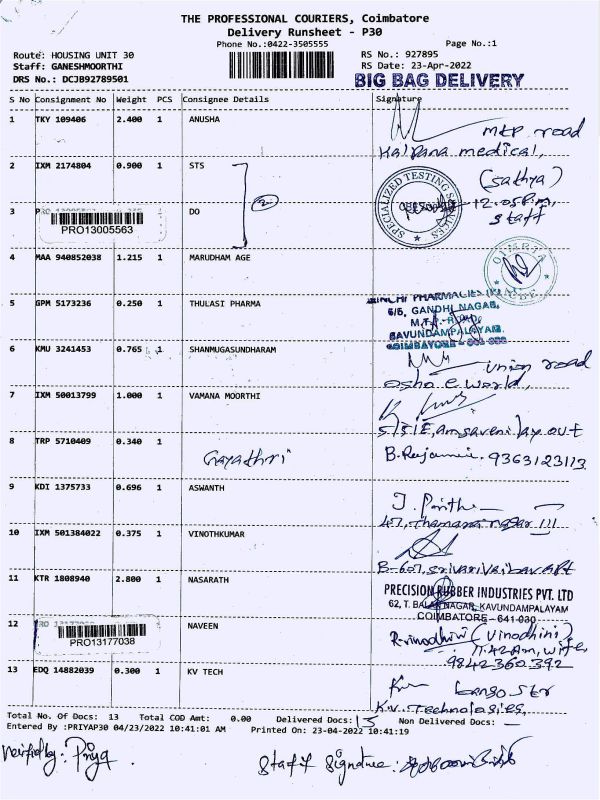 THE PROFESSIONAL COURIERS, Coimbatore
Delivery Runsheet - P30
Phone No.:0422-3505555
Page No.:1
Route: HOUSING UNIT 30
RS No.: 927895
Staff: GANESHMOORTHI
RS Date: 23-Apr-2022
DRS No.: DCJB92789501
BIG BAG DELIVERY
S No Consignment No Weight PCS Consignee Details Signature
1 TKY 109406 2.400 1 ANUSHA
MTP road
Kalpana medical,
2 IXM 2174804 0.900 1 STS
(Sathya)
SPECIALIZED TESTING SERVICES
12.05P.M,
Staff
3 DO
PRO13005563
2
4 MAA 940852038 1.215 1 MARUDHAM AGE
5 GPM 5173236 0.250 1 THULASI PHARMA
6/5, GANDHI NAGAR,
GAVUNDAMPALAYAM,
6 KMU 3241453 0.765 1 SHANMUGASUNDHARAM
union road
osho e world,
7 IXM 50013799 1.000 1 VAMANA MOORTHI
8 TRP 5710409 0.340 1
Gayathri
9363123113
9 KDI 1375733 0.696 1 ASWANTH
10 IXM 501384022 0.375 1 VINOTHKUMAR
11 KTR 1808940 2.800 1 NASARATH
PRECISION RUBBER INDUSTRIES PVT. LTD
62, T. BALAJI NAGAR, KAVUNDAMPALAYAM
COIMBATORE - 641 030
12 NAVEEN
PRO13177038
R.vinodhini (Vinodhini)
11.42am, wife,
9842360392
13 EDQ 14882039 0.300 1 KV TECH
K.V. Technologies,
Total No. Of Docs: 13 Total COD Amt: 0.00 Delivered Docs: 13 Non Delivered Docs: —
Entered By :PRIYAP30 04/23/2022 10:41:01 AM Printed On: 23-04-2022 10:41:19
Verified by: Priya
Staff Signature: